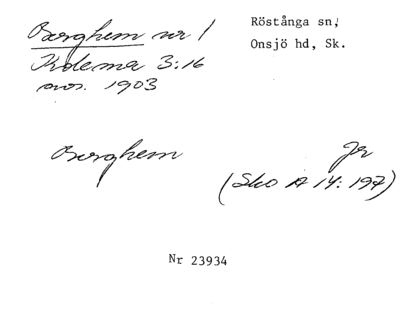 Borghem nr 1
Röstånga sn,
Onsjö hd, Sk.
Kolema 3:16
avs. 1903
Borghem
Jr
(Sko A 14: 197)
Nr 23934